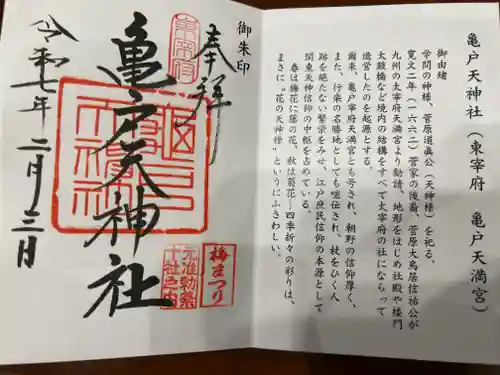 亀戸天神社(東宰府 亀戸天満宮)
御由緒
学問の神様、菅原道眞公(天神様)を祀る。
寛文二年(一六六二)菅家の後裔、菅原大鳥居信祐公が
九州の太宰府天満宮より勧請、地形をはじめ社殿や楼門
太鼓橋など境内の結構をすべて太宰府の社にならって
造営したのを起源とする。
爾来、亀戸宰府天満宮とも号され、朝野の信仰厚く、
また、行楽の名勝地としても喧伝され、杖をひく人
跡を絶たない繁栄をみせ、江戸庶民信仰の本源として
関東天神信仰の中枢を占めている。
春は梅花に藤の花、秋は菊花―四季折々の彩りは、
まさに“花の天神様”というにふさわしい。
御朱印
奉拝
東宰府
亀戸天神社
梅まつり
元准勅祭
十社之内
令和七年 二月二三日